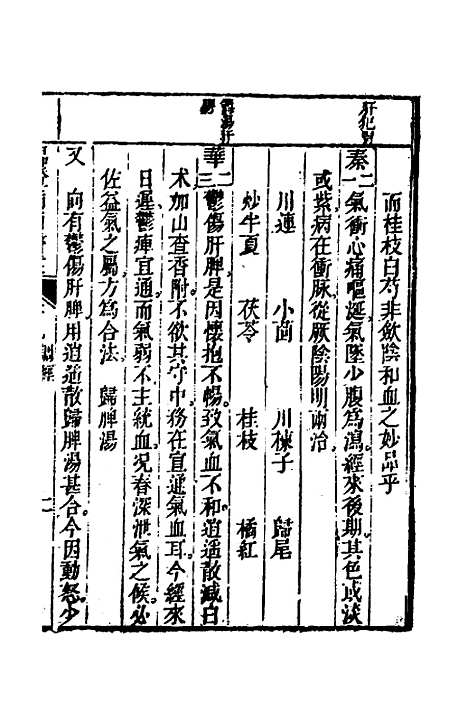 肝犯胃
而桂枝白芍非斂陰和血之妙品乎
秦二一 氣衝心痛嘔涎氣墜少腹為瀉經來後期其色或淡
或紫病在衝脈從厥陰陽明兩治
川連 小茴 川楝子 歸尾
炒半夏 茯苓 桂枝 橘紅
鬱傷肝脾
華二三 鬱傷肝脾是因懷抱不暢致氣血不和逍遙散減白
朮加山查香附不欲其守中務在宣通氣血耳今經來
日遲鬱痺宜通而氣弱不主統血況春深泄氣之候必
佐益氣之屬方為合法 歸脾湯
又 向有鬱傷肝脾用逍遙散歸脾湯甚合今因動怒少
調經